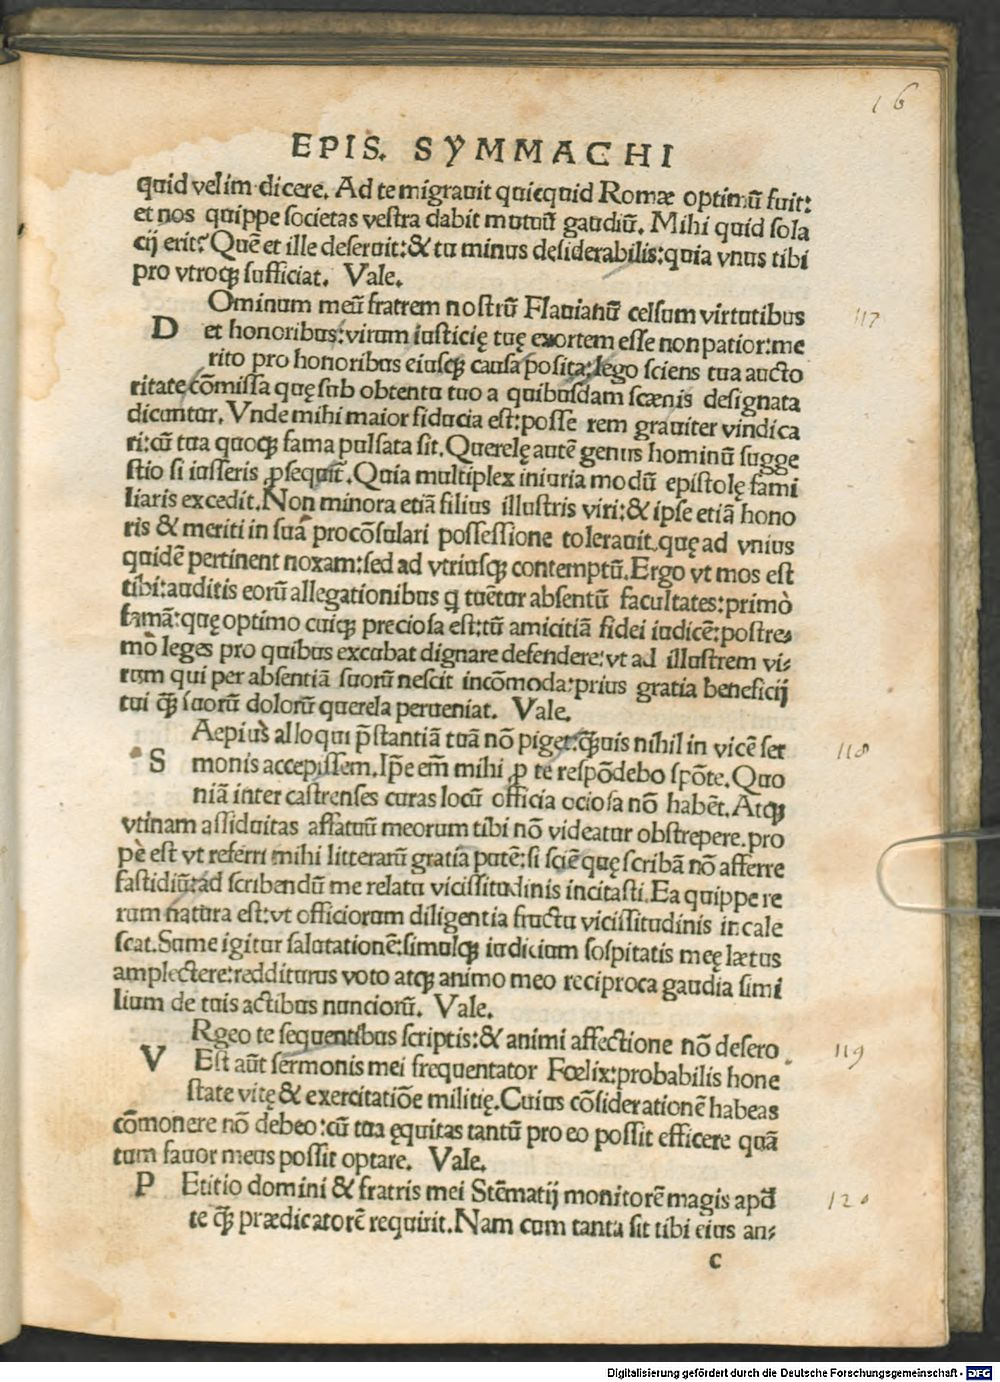 16
EPIS. SYMMACHI
quid velim dicere. Ad te migrauit quicquid Romæ optimũ fuit:
et nos quippe societas vestra dabit mutuũ gaudiũ. Mihi quid sola
cij erit? Quẽ et ille deseruit:& tu minus desiderabilis:quia vnus tibi
pro vtroqꝫ sufficiat. Vale.
Ominum meũ fratrem nostrũ Flauianũ celsum virtutibus
117
D et honoribus:virum iusticię tuę exortem esse non patior:me
rito pro honoribus eiusqꝫ causa posita:lego sciens tua aucto
ritate cõmissa quę sub obtentu tuo a quibusdam scænis designata
dicuntur. Vnde mihi maior fiducia est:posse rem grauiter vindica
ri:cũ tua quoqꝫ fama pulsata sit. Querelę autẽ genus hominũ sugge
stio si iusseris ꝓsequit̃. Quia multiplex iniuria modũ epistolę fami
liaris excedit. Non minora etiã filius illustris viri:& ipse etiã hono
ris & meriti in suã procõsulari possessione tolerauit.quę ad vnius
quidẽ pertinent noxam:sed ad vtriusqꝫ contemptũ. Ergo vt mos est
tibi:auditis eorũ allegationibus q tuẽtur absentũ facultates:primò
famã:quę optimo cuiqꝫ preciosa est:tũ amicitiã fidei iudicẽ:postre⸗
mò leges pro quibus excubat dignare defendere:vt ad illustrem vi⸗
rum qui per absentiã suorũ nescit incõmoda:prius gratia beneficij
tui q̃ꝫ suorũ dolorũ querela perueniat. Vale.
Aepius alloqui p̃stantiã tuã nõ piget:q̃ꝫuis nihil in vicẽ ser
118
S monis accepissem. Ip̃e em̃ mihi ꝓ te respõdebo spõte. Quo
niã inter castrenses curas locũ officia ociosa nõ habẽt. Atqꝫ
vtinam assiduitas affatuũ meorum tibi nõ videatur obstrepere.pro
pè est vt referri mihi litterarũ gratia putẽ:si sciẽ quę scribã nõ afferre
fastidiũ:ad scribendũ me relatu vicissitudinis incitasti. Ea quippe re
rum natura est:vt officiorum diligentia fructu vicissitudinis incale
scat. Sume igitur salutationẽ:simulqꝫ iudicium sospitatis meę lætus
amplectere:redditurus voto atqꝫ animo meo reciproca gaudia simi
lium de tuis actibus nunciorũ. Vale.
Rgeo te sequentibus scriptis:& animi affectione nõ desero
119
V Est aũt sermonis mei frequentator Fœlix:probabilis hone
state vitę & exercitatiõe militię. Cuius cõsiderationẽ habeas
cõmonere nõ debeo:cũ tua ęquitas tantũ pro eo possit efficere quã
tum fauor meus possit optare. Vale.
P Etitio domini & fratris mei Stẽmatij monitorẽ magis apud
120
te q̃ꝫ prædicatorẽ requirit. Nam cum tanta sit tibi eius an⸗
c
Digitalisierung gefördert durch die Deutsche Forschungsgemeinschaft - DFG